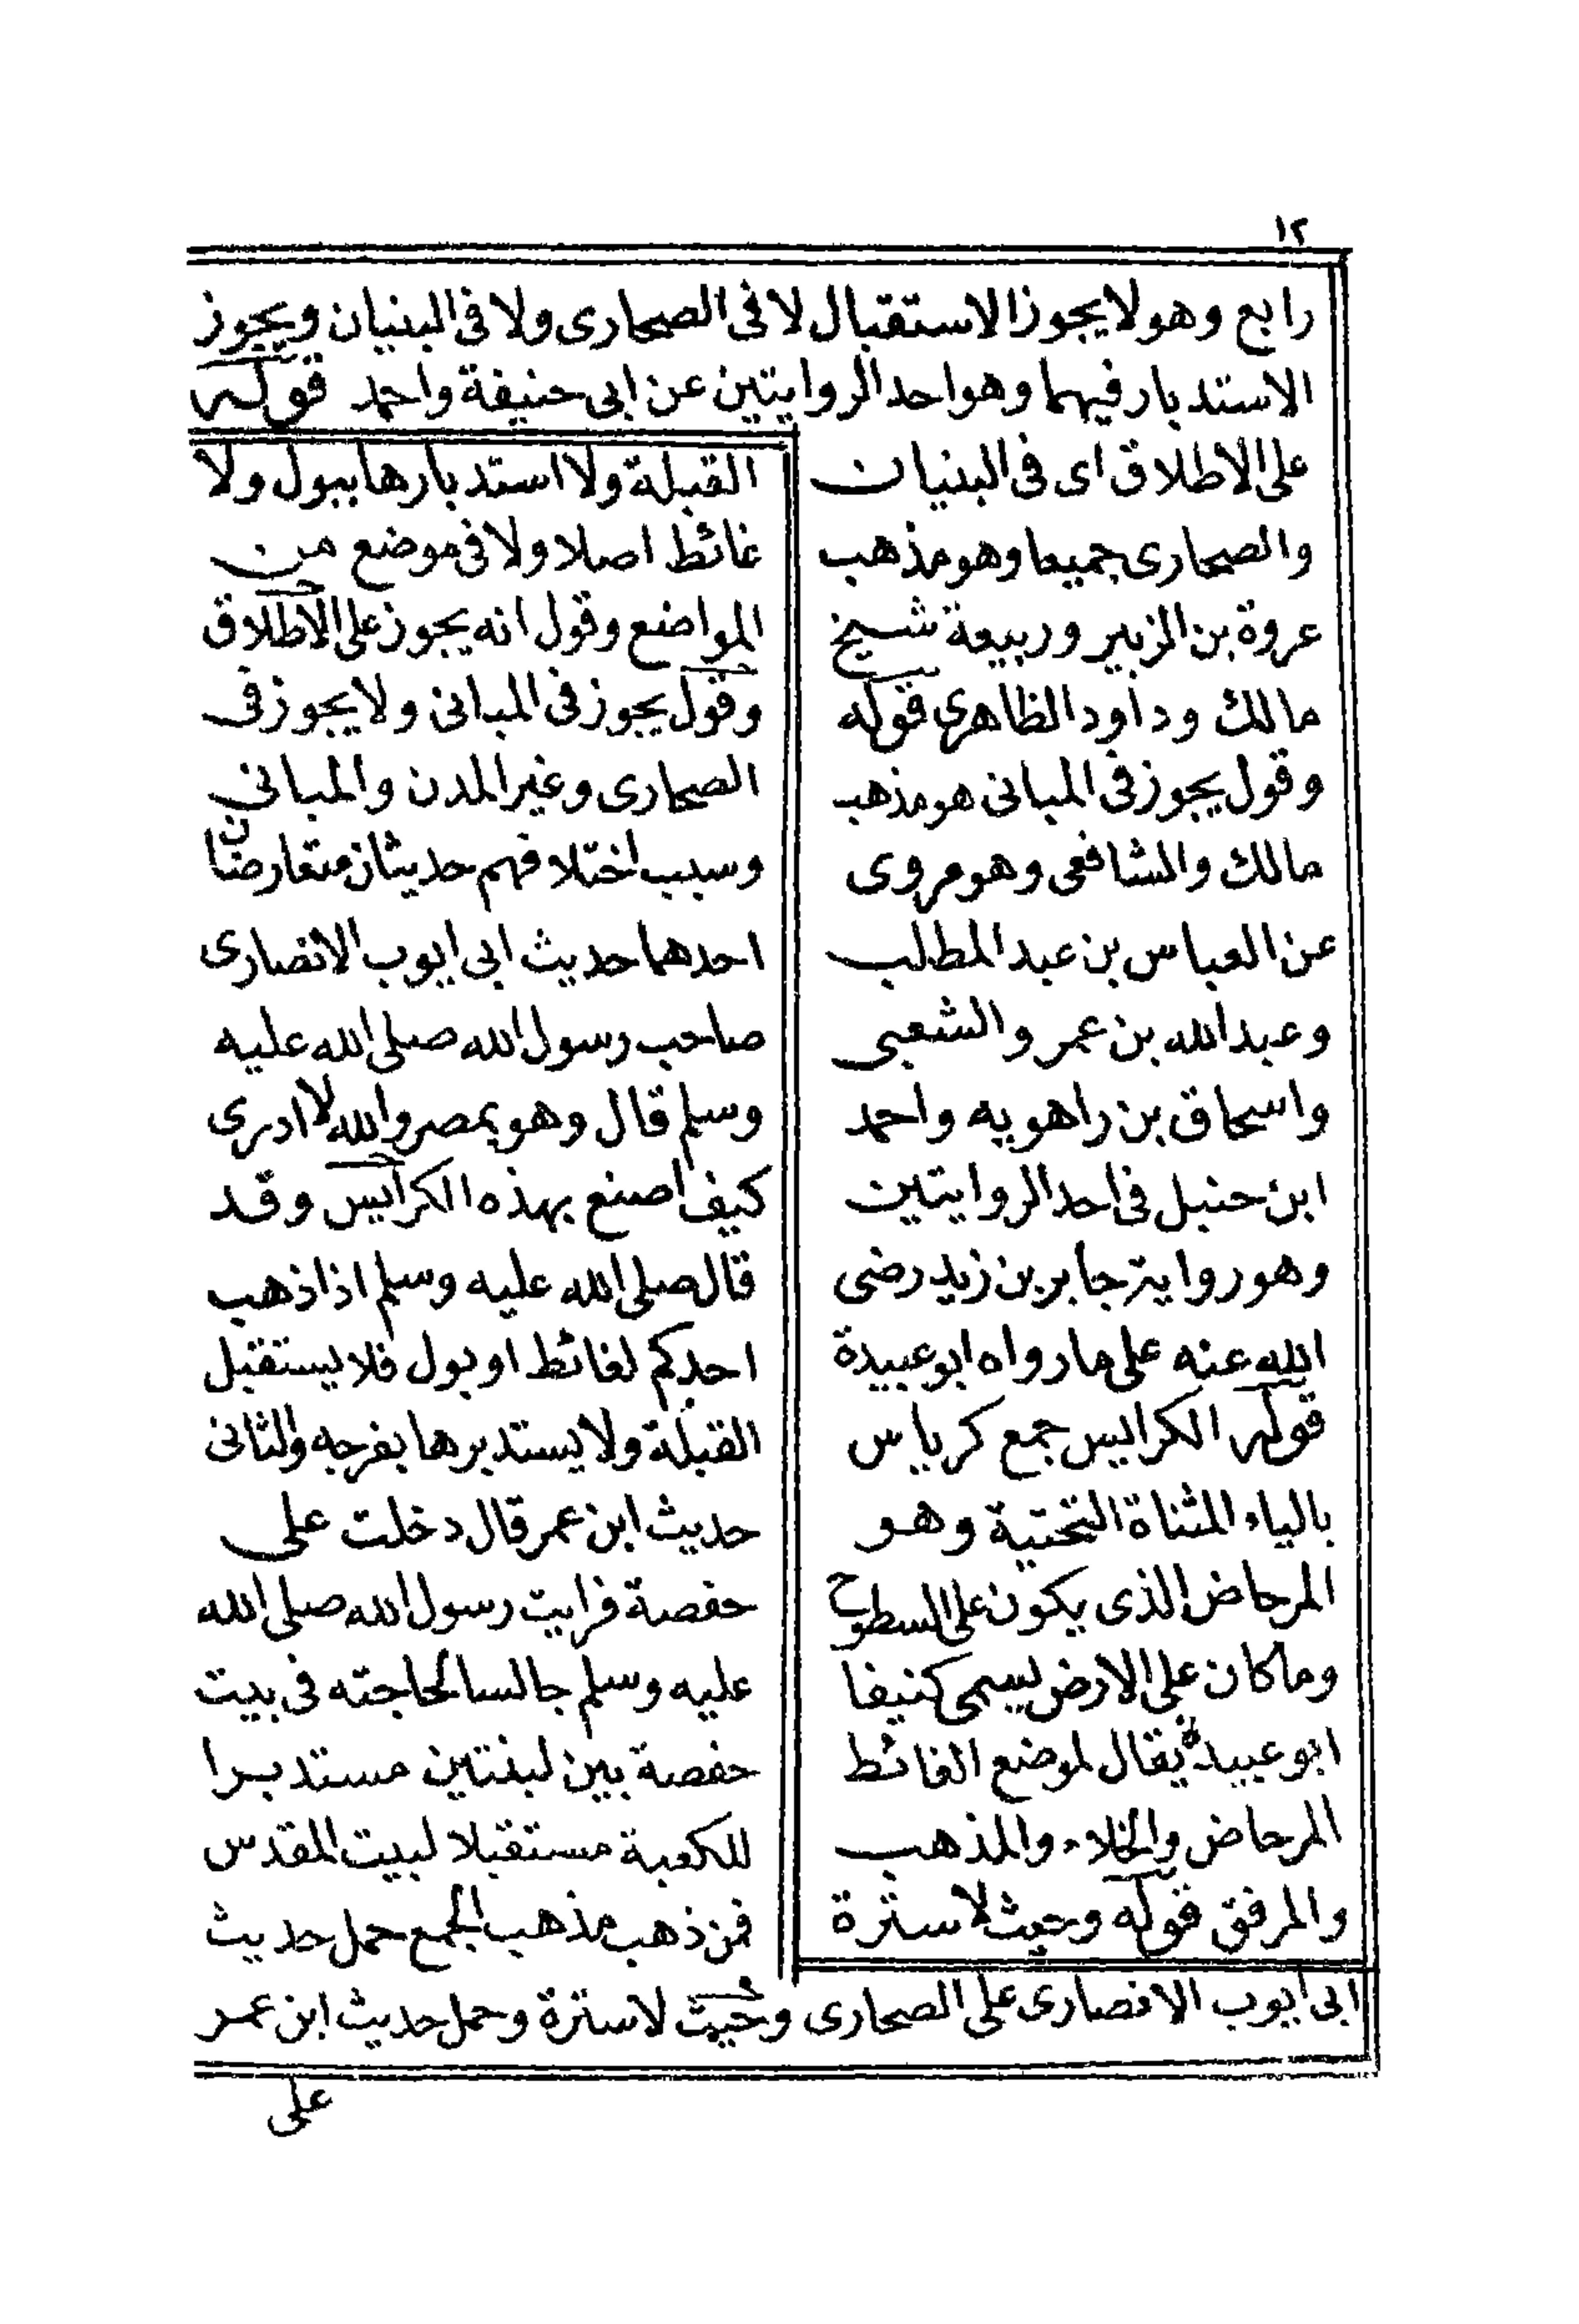 ١٢
رابع وهو لا يجوز الاستقبال لا فى الصحارى ولا فى البنيان ويجوز
الاستدبار فيهما وهو احد الروايتين عن ابى حنيفة واحمد قوله
على الاطلاق اى فى البنيان
والصحارى جميعا وهو مذهب
عروة بن الزبير وربيعة شيخ
مالك وداود الظاهرى قوله
وقول يجوز فى المبانى هو مذهب
مالك والشافعى وهو مروى
عن العباس بن عبد المطلب
وعبد الله بن عمر والشعبى
واسحاق بن راهويه واحمد
ابن حنبل فى احد الروايتين
وهو رواية جابر بن زيد رضى
الله عنه على ما رواه ابو عبيدة
قوله الكراييس جمع كرياس
بالياء المثناة التحتية وهو
المرحاض الذى يكون على السطوح
وما كان على الارض يسمى كنيفا
ابو عبيدة يقال لموضع الغائط
المرحاض والخلاء والمذهب
والمرفق قوله وحيث لا سترة
القبلة ولا استدبارها ببول ولا
غائط اصلا ولا فى موضع من
المواضع وقول انه يجوز على الاطلاق
وقول يجوز فى المبانى ولا يجوز فى
الصحارى وغير المدن والمبانى
وسبب اختلافهم حديثان متعارضان
احدهما حديث ابى ايوب الانصارى
صاحب رسول الله صلى الله عليه
وسلم قال وهو بمصر والله لا ادرى
كيف اصنع بهذه الكراييس وقد
قال صلى الله عليه وسلم اذا ذهب
احدكم لغائط او بول فلا يستقبل
القبلة ولا يستدبرها بفرجه والثانى
حديث ابن عمر قال دخلت على
حفصة فرايت رسول الله صلى الله
عليه وسلم جالسا لحاجته فى بيت
حفصة بين لبنتين مستدبرا
للكعبة مستقبلا لبيت المقدس
فمن ذهب مذهب الجمع حمل حديث
ابى ايوب الانصارى على الصحارى وحيث لا سترة وحمل حديث ابن عمر
على